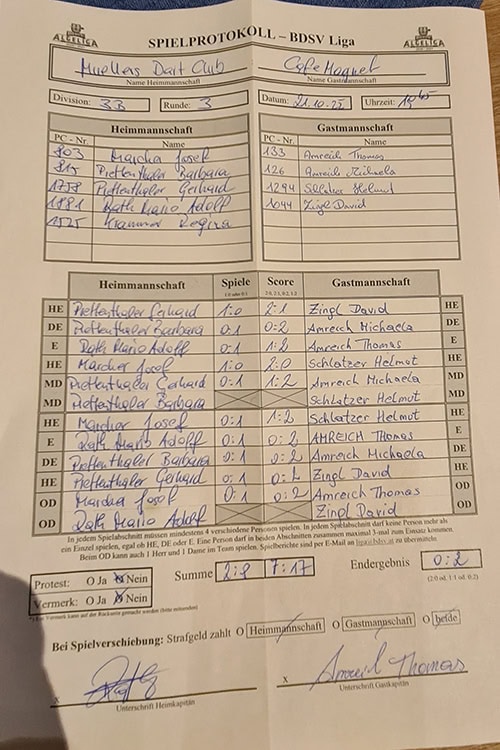 ALGELIGA SPIELPROTOKOLL – BDSV Liga ALGELIGA
Muellers Dart Club Cafe Magnet
Name Heimmannschaft Name Gastmannschaft
Division: 3B Runde: 3 Datum: 21.10.25 Uhrzeit:
Heimmannschaft Gastmannschaft
PC - Nr. Name PC - Nr. Name
803 Marcher Josef 133 Amreich Thomas
815 Prettenthaler Barbara 126 Amreich Michaela
1758 Prettenthaler Gerhard 1294 Schlatzer Helmut
1881 Rath Mario Adolf 1044 Zingl David
1525 Krammer Regina
Heimmannschaft Spiele Score Gastmannschaft
1:0 oder 0:1 2:0, 2:1, 0:2, 1:2
HE Prettenthaler Gerhard 1:0 2:1 Zingl David HE
DE Prettenthaler Barbara 0:1 0:2 Amreich Michaela DE
E Rath Mario Adolf 0:1 1:2 Amreich Thomas E
HE Marcher Josef 1:0 2:0 Schlatzer Helmut HE
MD Prettenthaler Gerhard 0:1 1:2 Amreich Michaela MD
MD Prettenthaler Barbara Schlatzer Helmut MD
HE Marcher Josef 0:1 1:2 Schlatzer Helmut HE
E Rath Mario Adolf 0:1 0:2 AMREICH Thomas E
DE Prettenthaler Barbara 0:1 0:2 Amreich Michaela DE
HE Prettenthaler Gerhard 0:1 0:2 Zingl David HE
OD Marcher Josef 0:1 0:2 Amreich Thomas OD
OD Rath Mario Adolf Zingl David OD
In jedem Spielabschnitt müssen mindestens 4 verschiedene Personen spielen. In jedem Spielabschnitt darf keine Person mehr als
ein Einzel spielen, egal ob HE, DE oder E. Eine Person darf in beiden Abschnitten zusammen maximal 3-mal zum Einsatz kommen.
Beim OD kann auch 1 Herr und 1 Dame im Team spielen. Spielberichte sind per E-Mail an liga@bdsv.at zu übermitteln.
Protest: O Ja O Nein Summe 2:8 7:17 Endergebnis 0:2
Vermerk: O Ja O Nein (2:0 od. 1:1 od. 0:2)
*) Der Vermerk kann auf der Rückseite gemacht werden (bitte mitsenden)
Bei Spielverschiebung: Strafgeld zahlt O Heimmannschaft O Gastmannschaft O beide
x x Amreich Thomas
Unterschrift Heimkapitän Unterschrift Gastkapitän